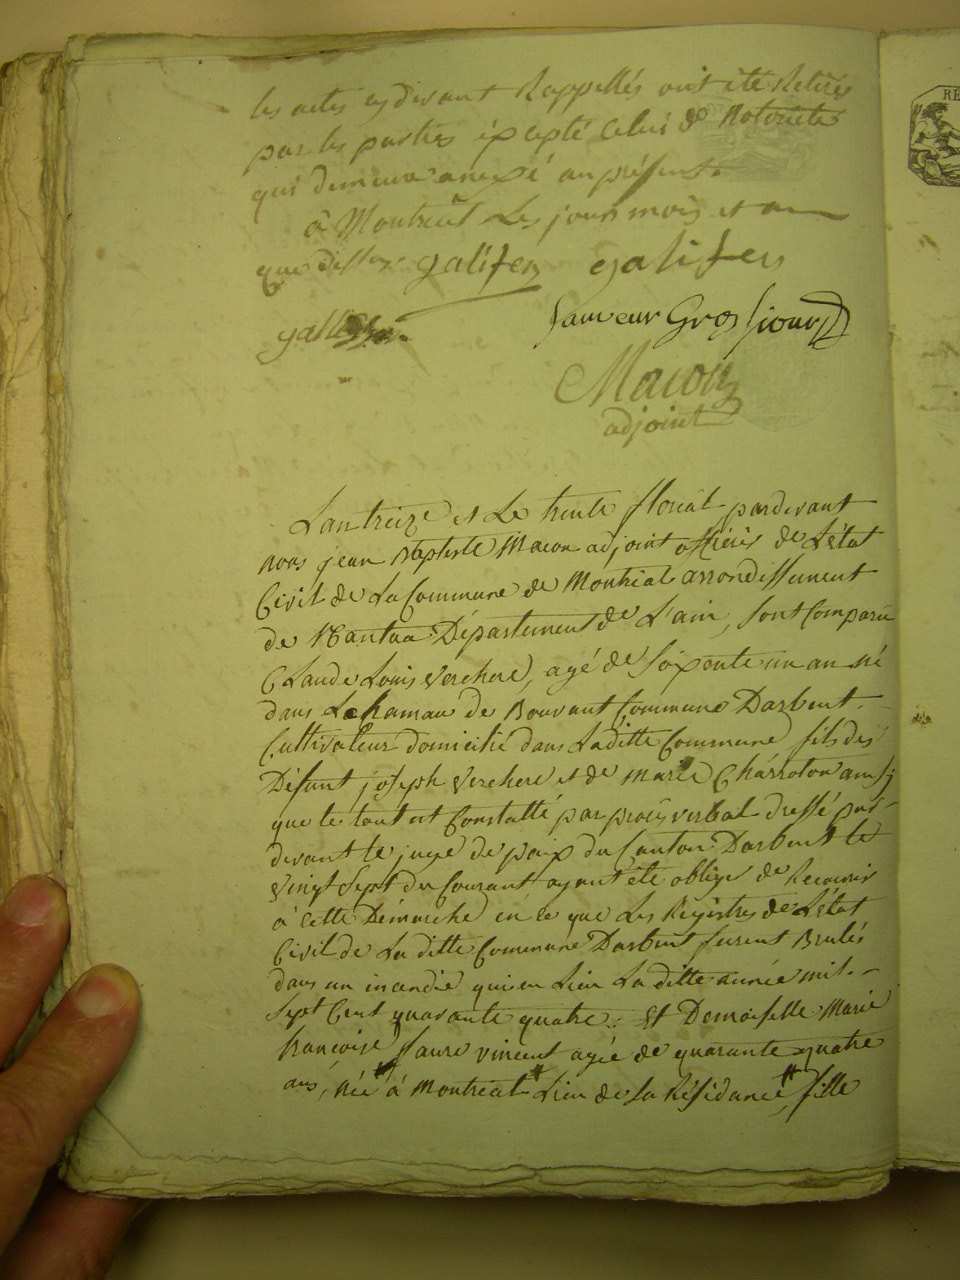 les actes cy devant Rappellés ont été Retirés
par les parties éxcepté Celui de Notoriété
qui demeure anexé au présent.
à Montreal Les jours mois et an
que dessus. galifer galifer
Sauveur Grosjiour
Macon
adjoint
Lan treize et Le trente floreal pardevant
nous jean Baptiste Macon adjoint officier de L'état
Civil de La Commune de Montréal arrondissement
de Nantua Département de L'ain, sont Comparu
Claude Louis Verchere, agé de soixonte un an né
dans Le hamau de Bouvant Commune Darbent.
Cultivateur domicilié dans Laditte Commune fils des
Défunt joseph Verchere et de Marie Charroton ainsj
que le tout est Constatté par procès verbal dressé par
devant le juge de paix du Canton Darbent le
vingt Sept du Courant ayant été obliger de Recourir
à Cette Démarche en ce que Les Registres de L'état
Civil de La ditte Commune Darbent furent Brulés
dans un incendie qui eu Lieu La ditte année mil-
Sept Cent quarante quatre; Et Demoiselle Marie
francoise faure vincent agée de quarante quatre
ans, née à Montreal Lieu de sa Résidance, fille
RE